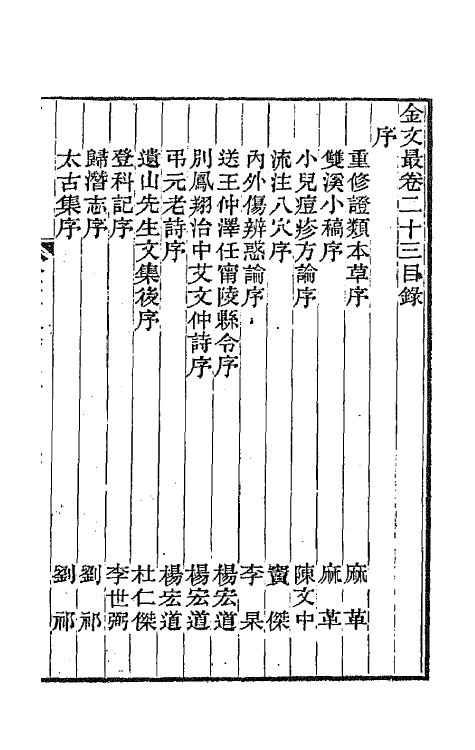 金文最卷二十三目錄
序
重修證類本草序 麻革
雙溪小稿序 麻革
小兒痘疹方論序 陳文中
流注八穴序 竇傑
內外傷辨惑論序 李杲
送王仲澤任甯陵縣令序 楊宏道
別鳳翔治中艾文仲詩序 楊宏道
弔元老詩序 楊宏道
遺山先生文集後序 杜仁傑
登科記序 李世弼
歸潛志序 劉祁
太古集序 劉祁